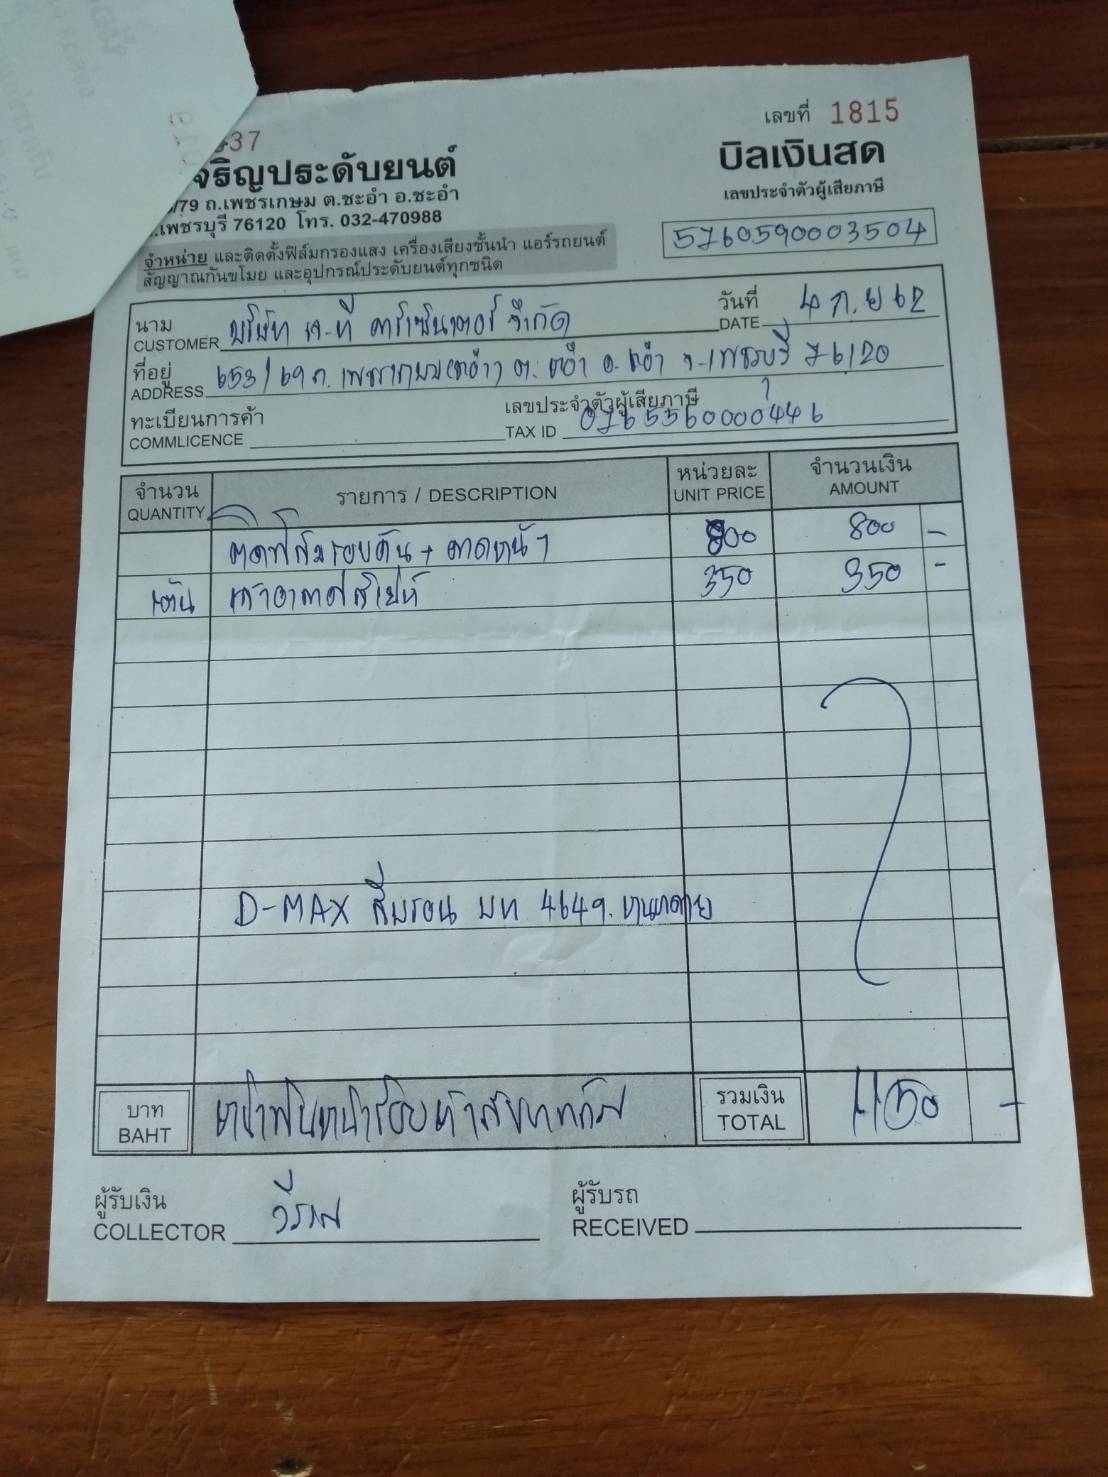 37
เลขที่ 1815
จริญประดับยนต์
บิลเงินสด
/79 ถ.เพชรเกษม ต.ชะอำ อ.ชะอำ
เลขประจำตัวผู้เสียภาษี
.เพชรบุรี 76120 โทร. 032-470988
5760590003504
จำหน่าย และติดตั้งฟิล์มกรองแสง เครื่องเสียงชั้นนำ แอร์รถยนต์
สัญญาณกันขโมย และอุปกรณ์ประดับยนต์ทุกชนิด
นาม บริษัท เจ-ที คาร์เซ็นเตอร์ จำกัด วันที่ 4 ก.ย 62
CUSTOMER DATE
ที่อยู่ 653/69 ถ.เพชรเกษม ต.ชะอำ อ.ชะอำ จ.เพชรบุรี 76120
ADDRESS
ทะเบียนการค้า เลขประจำตัวผู้เสียภาษี
COMMLICENCE TAX ID 0765560000446
จำนวน รายการ / DESCRIPTION หน่วยละ จำนวนเงิน
QUANTITY UNIT PRICE AMOUNT
ติดฟิล์มรอบคัน + คาดหน้า 800 800 -
1 อัน เสาอากาศสไปท์ 350 350 -
D-MAX สี่ประตู บท 4649
บาท รวมเงิน 1150 -
BAHT TOTAL
ผู้รับเงิน ผู้รับรถ
COLLECTOR RECEIVED